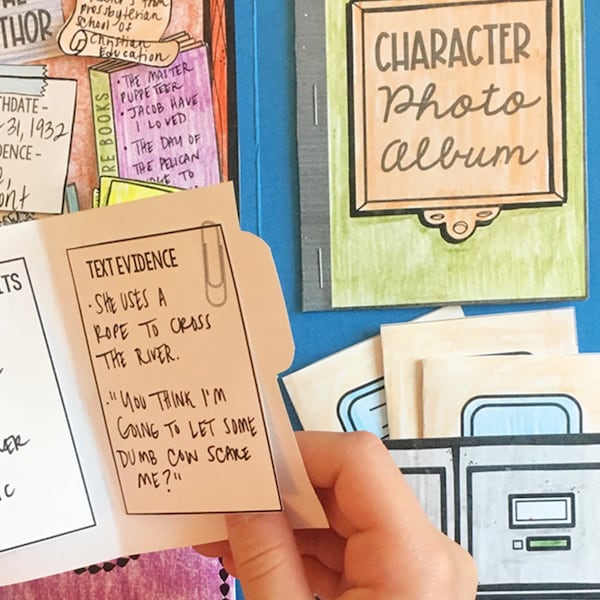 THE
THOR
Presbyterian
School of
Christian
Education
THDATE-
31, 1932
DENCE-
ont
RE BOOKS
• THE MASTER
PUPPETEER
• JACOB HAVE
I LOVED
• THE DAY OF
THE PELICAN
TO
CHARACTER
Photo
Album
ITS
ER
C
TEXT EVIDENCE
• SHE USES A
ROPE TO CROSS
THE RIVER.
• "YOU THINK I'M
GOING TO LET SOME
DUMB COW SCARE
ME?"